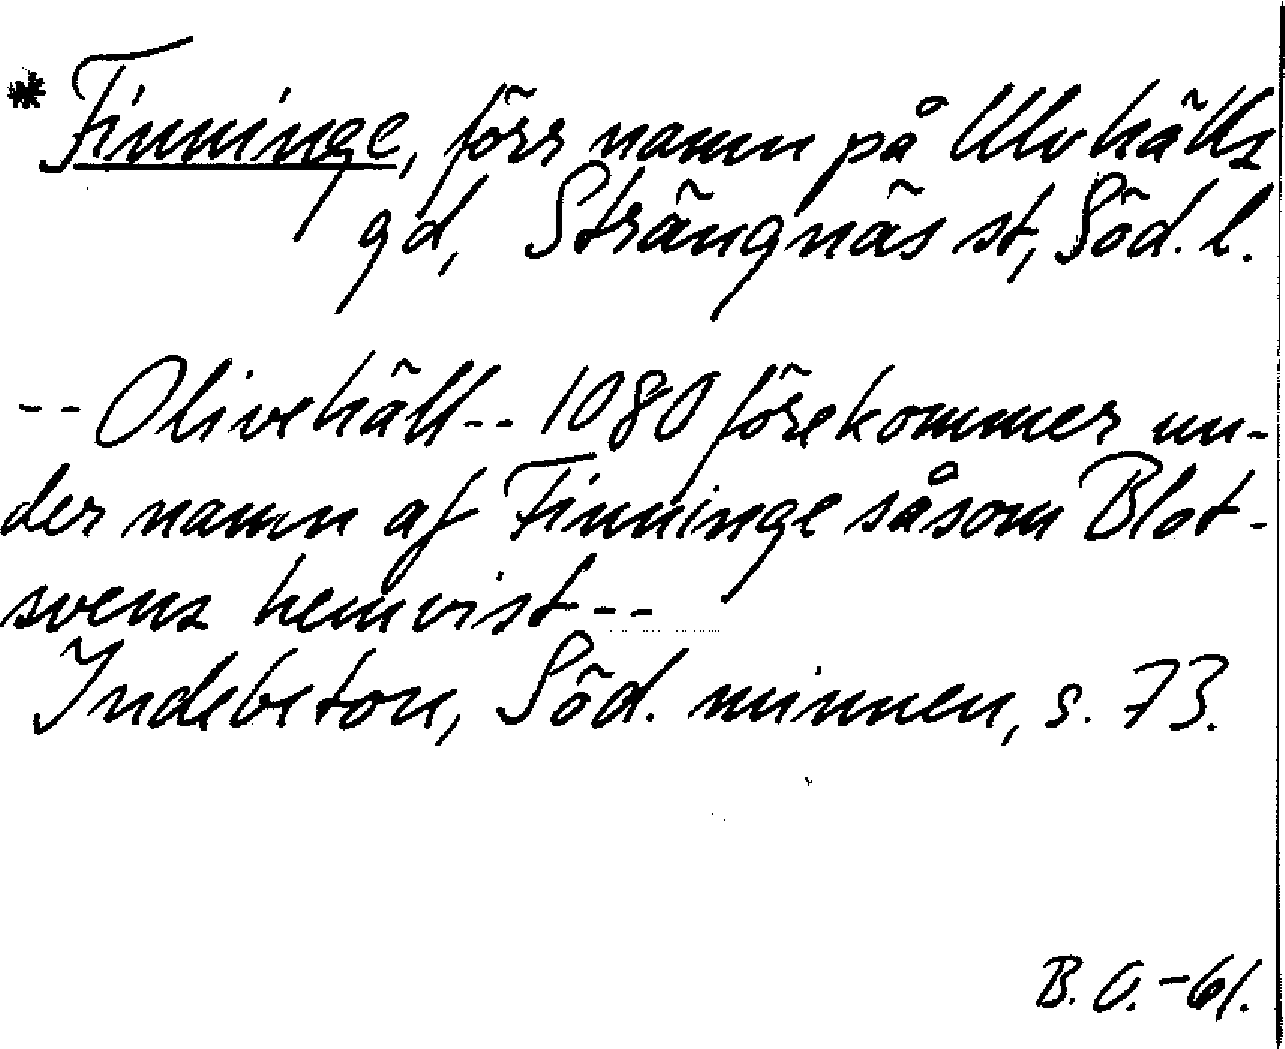 * Finninge, förr namn på Ulvhälls
gd, Strängnäs st, Söd. l.
-- Olivehäll -- 1080 förekommer un-
der namn af Finninge såsom Blot-
svens hemvist --
Indebetou, Söd. minnen, s. 73.
B. O. -61.